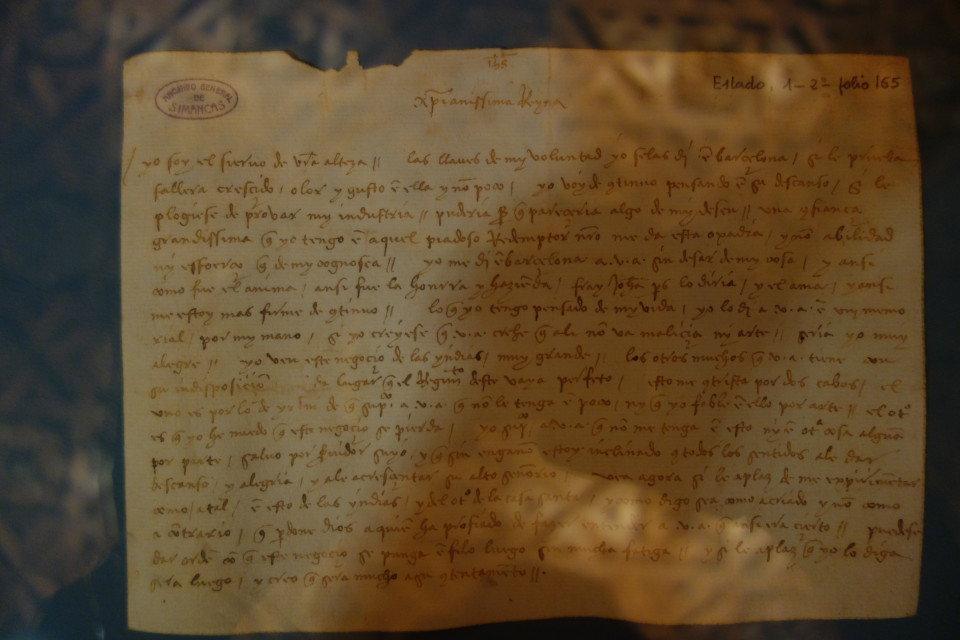 165
ARCHIVO GENERAL
DE
SIMANCAS
Estado, 1-2º folio 165
xpianissima Reyna
yo soy el siervo de vra alteza // las llaves de my voluntad yo se las di ē barcelona / si le prueba
fallera crescido / olor y gusto ē ella y nō poco / yo voy de 9tinuo pensando ē su descanso / si le
plogiese de provar my industria // pudería q̄ pareçeria algo de my deseu // una 9fiança
grandissima q̄ yo tengo ē aquel piadoso Redemptor nro me da esta opadia / y nō abilidad
ny esfuerço q̄ de my cognosca // yo me di ē barcelona a.v.a. sin dexar de my cosa / y ansi
como fue el anima / ansi fue la honrra y hazienda / fray Johā ps lo diria / y el ama / y ansi
me estoy mas firme de 9tinuo // lo q̄ yo tengo pensado de my vida / yo lo di a .v.a. ē un memo
rial / por my mano / si yo creyese q̄ .v.a. crehe q̄ ale nō va malicia ny arte // seria yo muy
alegre // yo veu este negocio de las yndias / muy grande // los otros muchos q̄ v.a. tiene con
su indisposiciō da lugar q̄ el Regimto deste vaya perfeto / esto me 9trista por dos cabos / el
uno es por lo de q̄ supco a .v.a. q̄ nō le tenga ē poco / ny q̄ yo fable ē ello por arte // el otº
es q̄ yo he miedo q̄ este negocio se pierda / yo supco a.v.a. q̄ nō me tenga ē esto ny ē otª cosa alguna
por parte / salvo por servidor suyo / y q̄ sin engano estoy inclinado 9 todos los sentidos ale dar
descanso / y alegria / y ale acresçentar su alto señorio / vea agora si le aplaz de me expirimentar
como atal / ē esto de las yndias / y del otº de la casa santa / y como digo sea como a criado y nō como
a cōtrario / q̄ p̄done dios a quiē ha profiado de fazer entender a .v.a. q̄ ansi era cierto // puedese
dar ordē cō q̄ este negocio se ponga ē filo luego sin mucha fatiga // y si le aplaz q̄ yo lo diga
sera luego / y creo q̄ sera mucho a su 9tentamēto //.